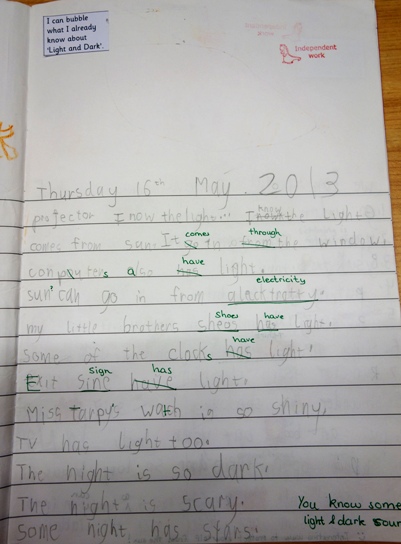 I can bubble
what I already
know about
'Light and Dark'.
Independent
work
Thursday 16th May. 2013
projector I now the light... I know the light
comes from sun. It comes in through the window.
computers also have light.
electricity
sun can go in from
shoes have
my little brothers light.
have
some of the clocks has light.
sign has
Exit sine have light.
Miss Torpy's watch is so shiny.
TV has light too.
The night is so dark.
The night is scary.
some night has stars.
You know some
light & dark sour